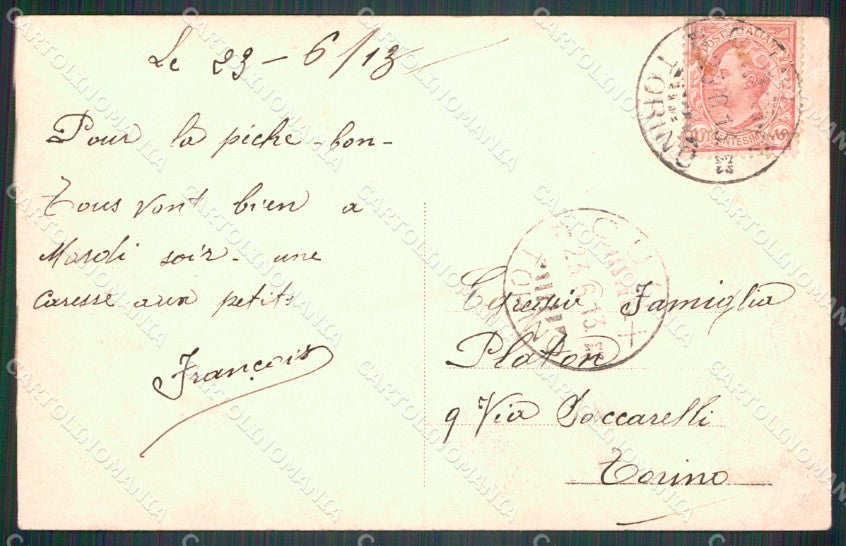 Le 23 - 6/13
Pour la piche - bon -
Tous vont bien a
Mardi soir - une
Caresse aux petits
François
Egregia Famiglia
Platon
9 Via Saccarelli
Torino
TORINO
23.6.13
TORINO
CARTOLINOMANIA